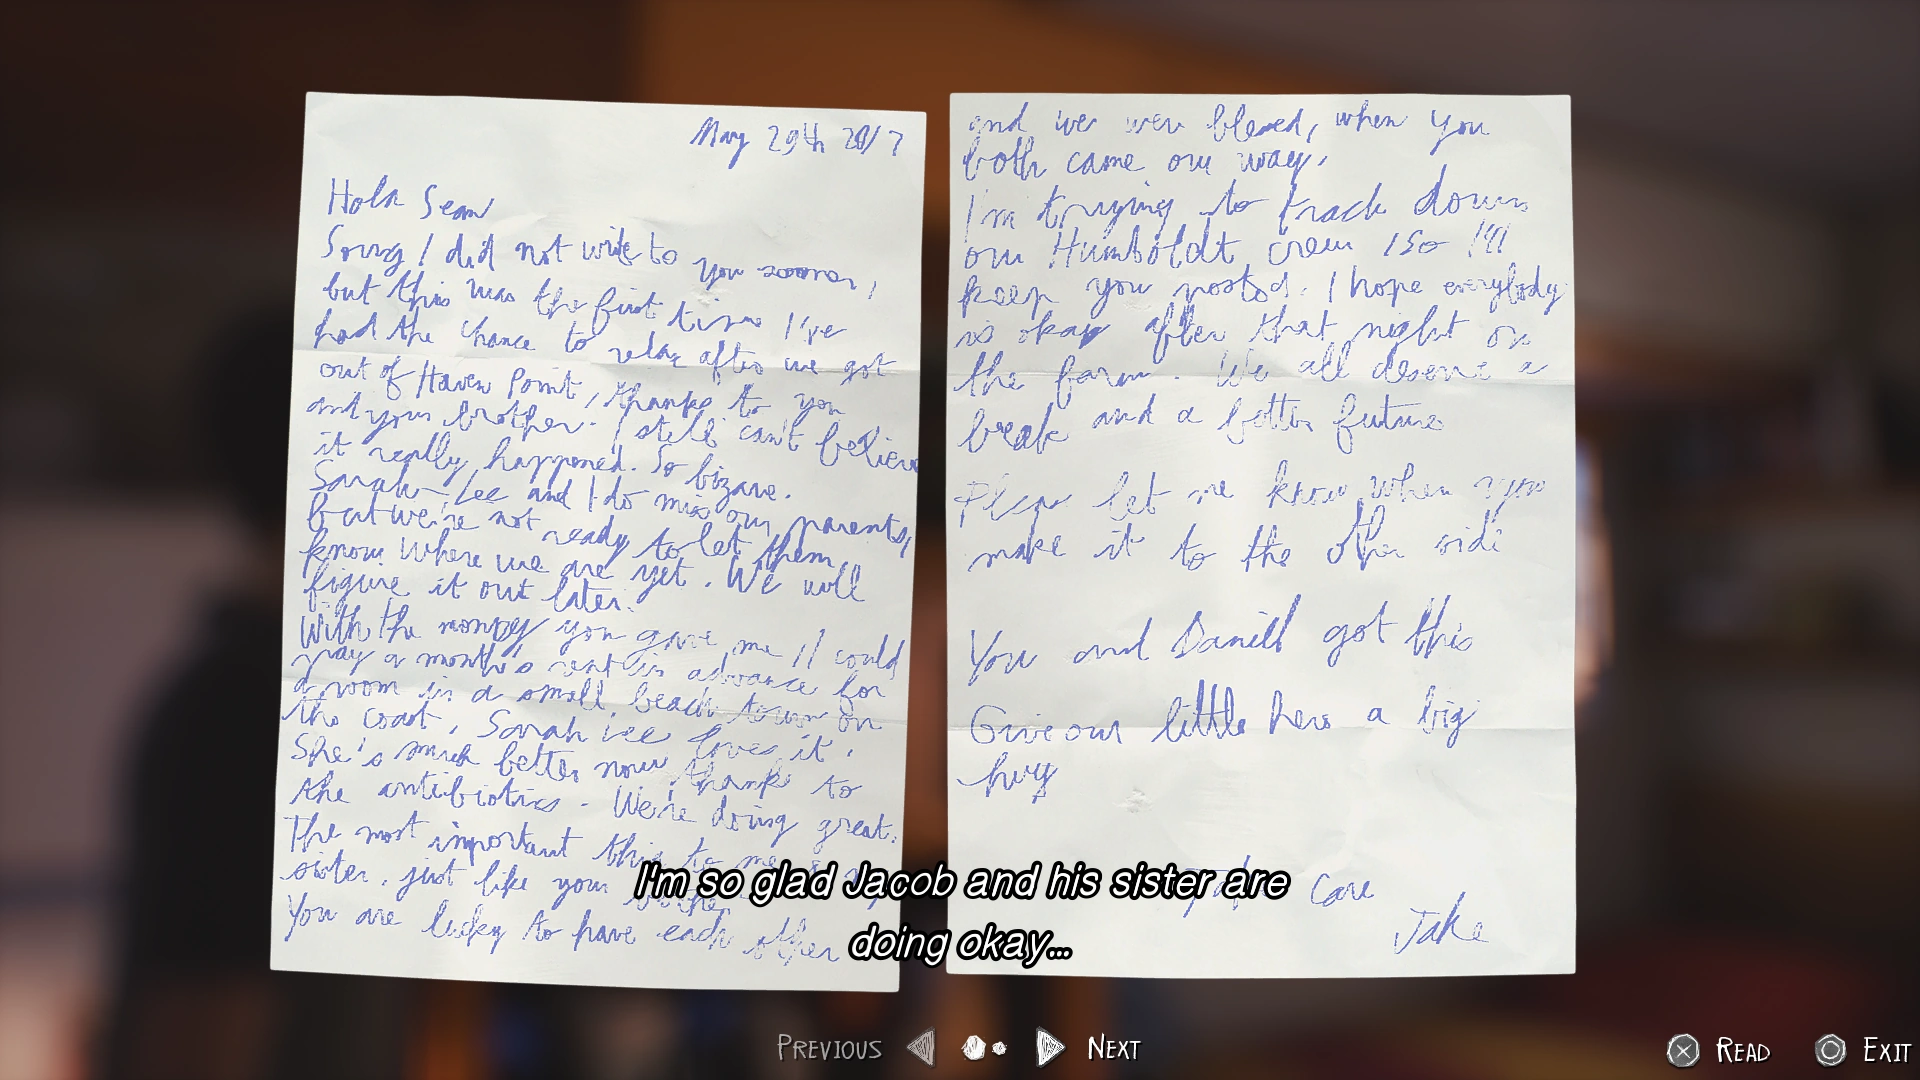 May 29th 2017
Hola Sean
Sorry I did not write to you sooner,
but this was the first time I've
had the chance to relax after we got
out of Haven Point, thanks to you
and your brother. I still can't believe
it really happened. So bizare.
Sarah-Lee and I do miss our parents,
but we're not ready to let them
know where we are yet. We will
figure it out later.
With the money you gave me I could
pay a month's rent in advance for
a room in a small beach town on
the coast, Sarah Lee loves it.
She's much better now, thanks to
the antibiotics. We're doing great.
The most important thing to me
sister, just like your brother
You are lucky to have each other
and we were blessed, when you
both came our way.
I'm trying to track down
our Humboldt crew, so I'll
keep you posted. I hope everybody
is okay after that night on
the farm. We all deserve a
break and a better future
Please let me know when you
make it to the other side
You and Daniel got this
Give our little hero a big
hug
Take Care
Jake
I'm so glad Jacob and his sister are
doing okay...
PREVIOUS NEXT
READ EXIT